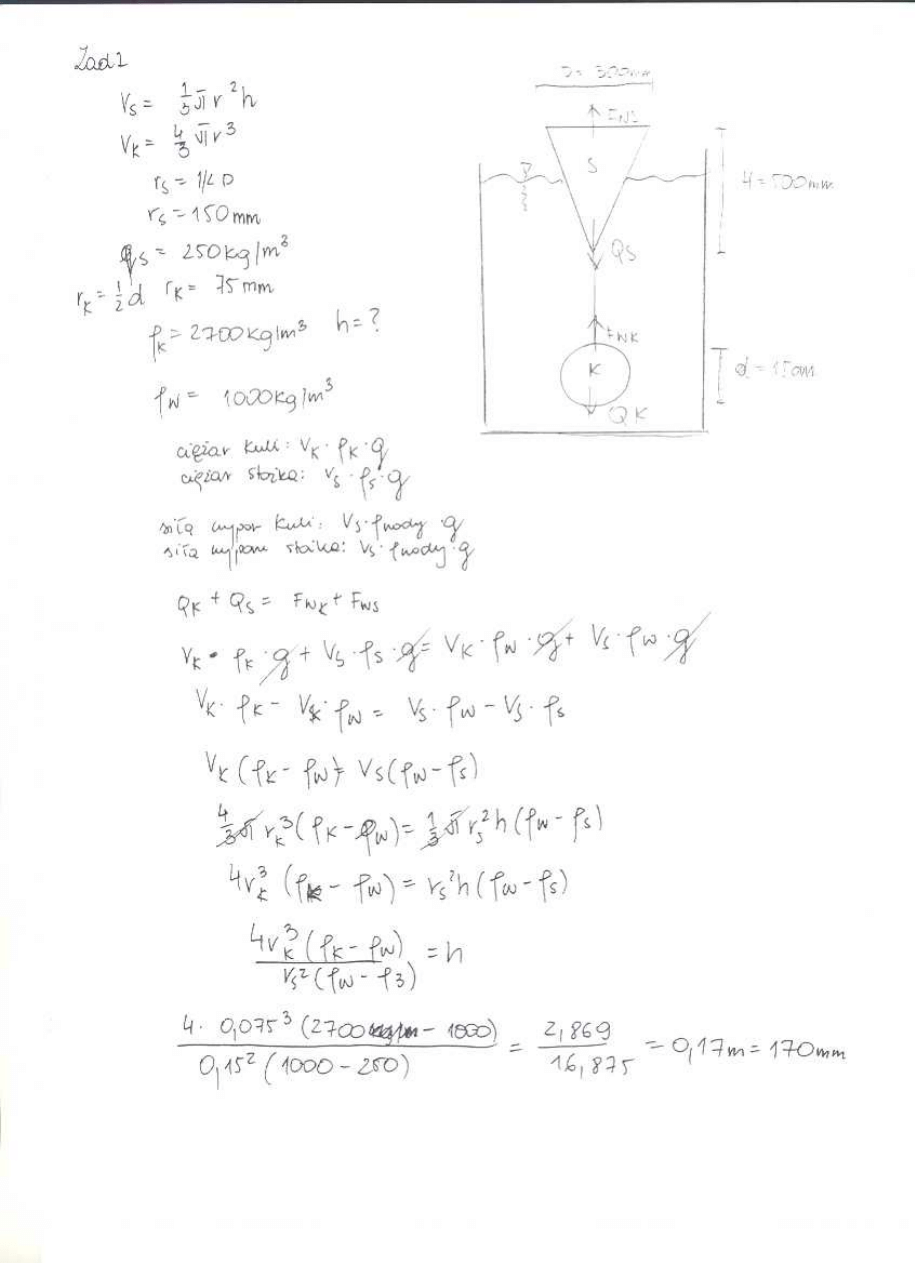 Zad 1
V_S = 1/3 π r²h
V_K = 4/3 π r³
r_S = 1/2 D
r_S = 150 mm
ρ_S = 250 kg/m³
r_K = 1/2 d r_K = 75 mm
ρ_K = 2700 kg/m³ h = ?
ρ_W = 1000 kg/m³
D = 300 mm
F_WS
S
H = 500 mm
QS
F_WK
K
d = 15cm
QK
ciężar kuli: V_K · ρ_K · g
ciężar stożka: V_S · ρ_S · g
siła wypor kuli: V_S · ρwody · g
siła wyporu stożka: V_S · ρwody · g
Q_K + Q_S = F_WK + F_WS
V_K · ρ_K · g + V_S · ρ_S · g = V_K · ρ_W · g + V_S · ρ_W · g
V_K · ρ_K - V_K · ρ_W = V_S · ρ_W - V_S · ρ_S
V_K (ρ_K - ρ_W) = V_S (ρ_W - ρ_S)
4/3 π r_K³ (ρ_K - ρ_W) = 1/3 π r_S² h (ρ_W - ρ_S)
4r_K³ (ρ_K - ρ_W) = r_S² h (ρ_W - ρ_S)
4r_K³ (ρ_K - ρ_W) / r_S² (ρ_W - ρ_3) = h
4 · 0,075³ (2700 - 1000) / 0,15² (1000 - 250) = 2,869 / 16,875 = 0,17m = 170mm